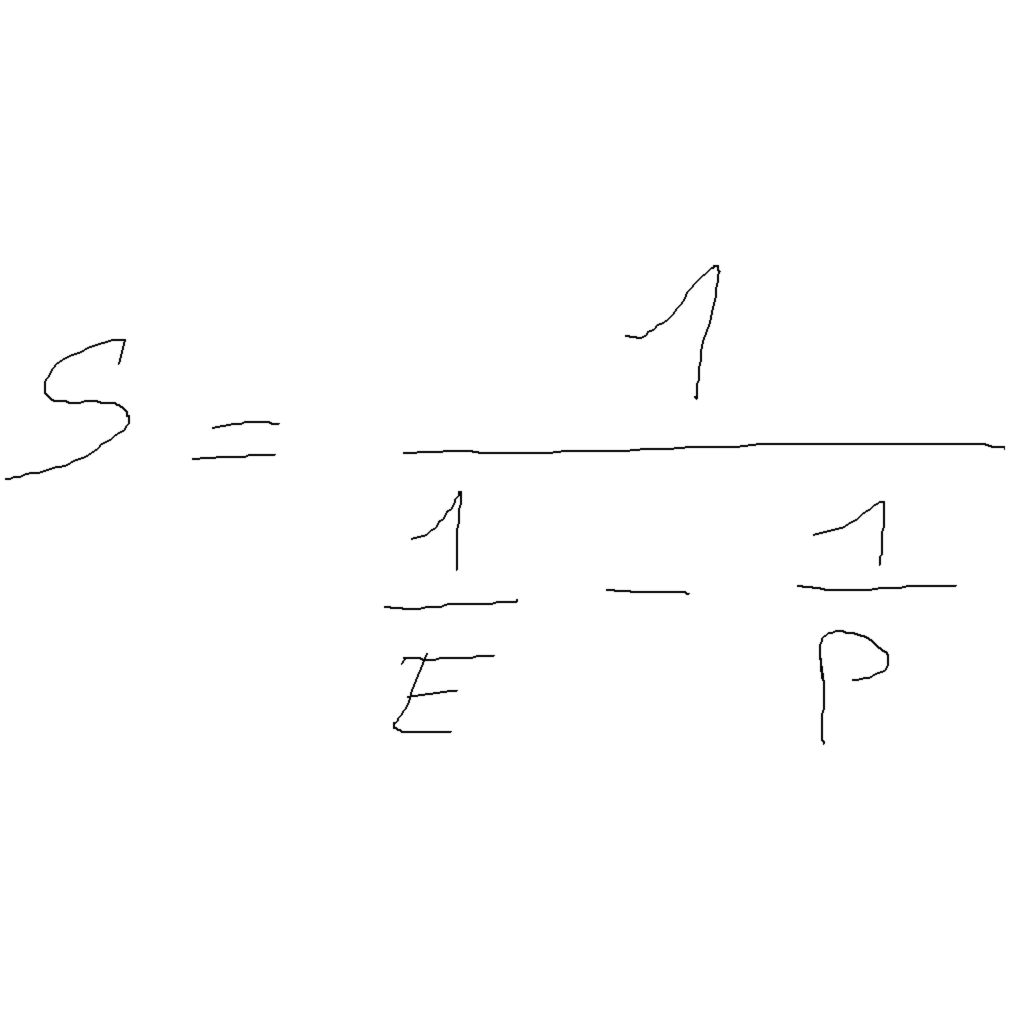 S = \frac{1}{\frac{1}{E} - \frac{1}{P}}